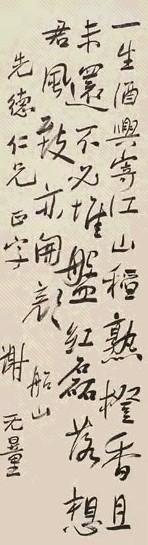 一生酒興寄江山稻熟橙香且
未還不必堆盤紅磊落想
君風致亦開顏 船山
先德仁兄正字 謝无量